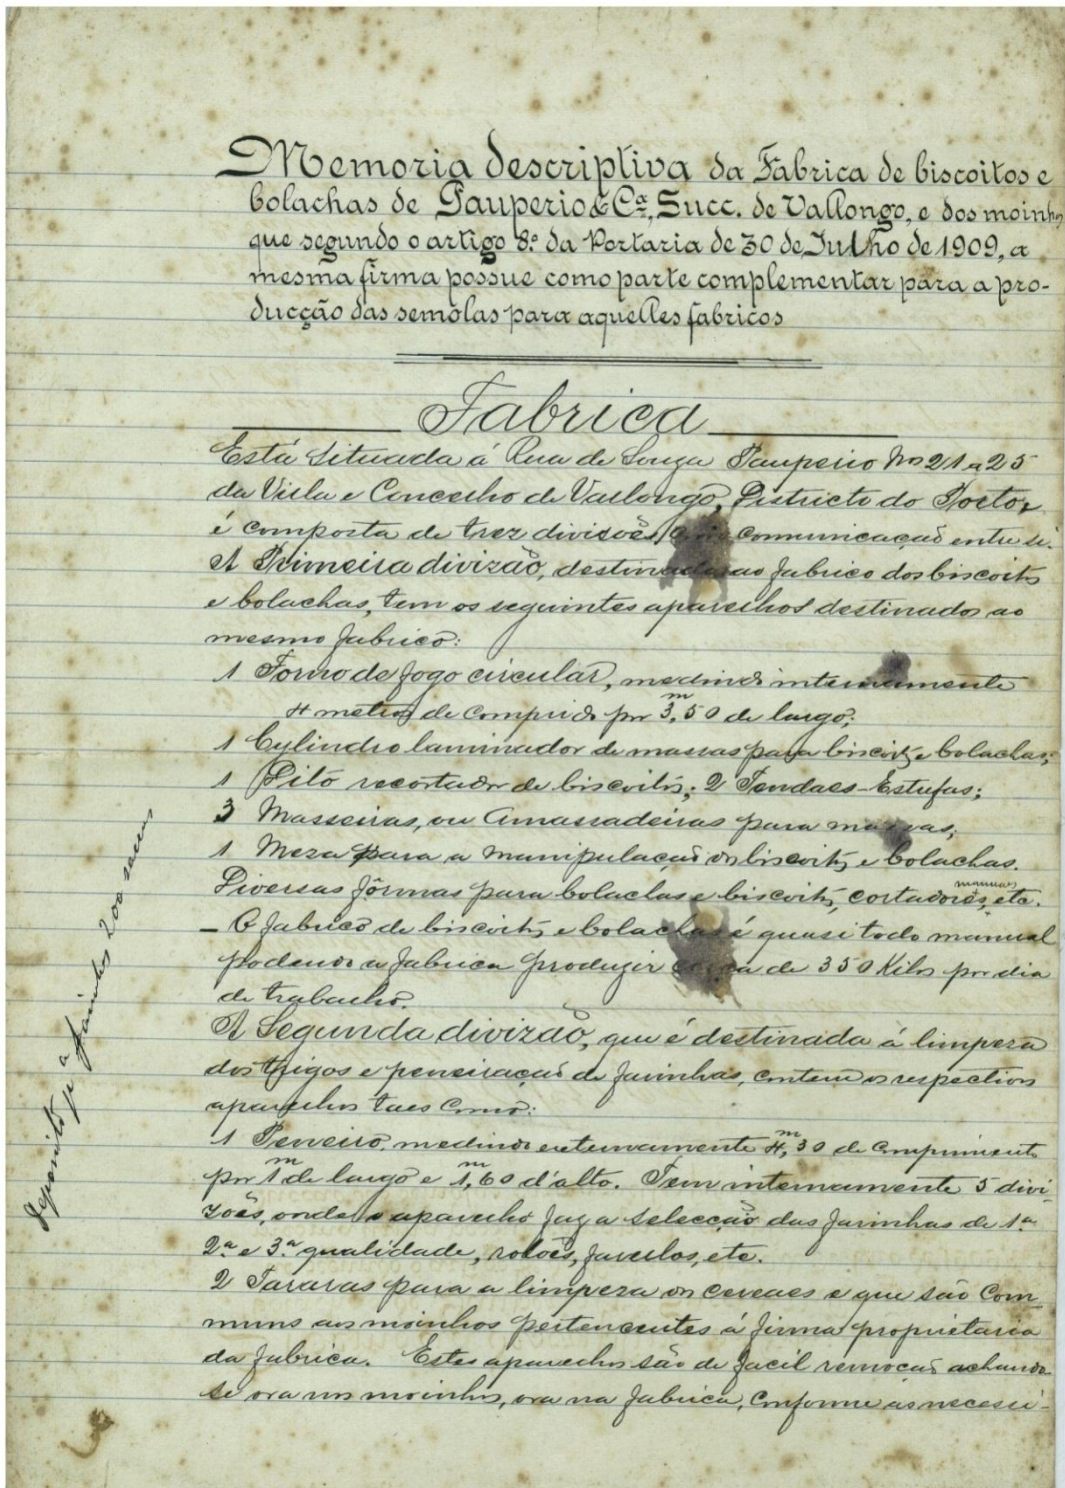 Memoria descriptiva da Fabrica de biscoitos e
bolachas de Pauperio & Cª, Succ. de Vallongo, e dos moinhos
que segundo o artigo 8º da Portaria de 30 de Julho de 1909, a
mesma firma possue como parte complementar para a pro-
ducção das semolas para aquelles fabricos
Fabrica
Está situada á Rua de Souza Pauperio Nos 21 a 25
da Villa e Concelho de Vallongo, Districto do Porto,
é composta de trez divisoēs, comunicação entre si.
A Primeira divizão, destinada ao fabrico dos biscoitos
e bolachas, tem os seguintes aparelhos destinados ao
mesmo fabrico:
1 Forno de fogo circular, medindo internamente
4 metros de comprido por 3,m50 de largo;
1 Cylindro laminador de massas para biscoitos e bolachas;
1 Pilō recortador de biscoitos; 2 Tendaes-Estufas;
3 Masseiras, ou Amassadeiras para massas;
1 Meza para a manipulação dos biscoitos e bolachas.
Diversas fôrmas para bolachas e biscoitos, cortadores manuaes, etc.
– O fabrico de biscoitos e bolachas é quasi todo manual
podendo a fabrica produzir cerca de 350 Kilos por dia
de trabalho.
A Segunda divizão, que é destinada á limpeza
dos trigos e peneiração de farinhas, contem os respectivos
aparelhos taes como:
1 Peneiro, medindo externamente 4,m30 de comprimento
por 1m de largo e 1,m60 d'alto. Tem internamente 5 divi-
zoēs, onde o aparelho faz a selecção das farinhas de 1ª
2ª e 3ª qualidade, rolões, farelos, etc.
2 Tararas para a limpeza dos cereaes e que são com-
muns aos moinhos pertencentes á firma proprietaria
da fabrica. Estes aparelhos são de facil remoção achando-
se ora nos moinhos, ora na fabrica, conforme as necessi-
deposito pª farinha 200 saccas